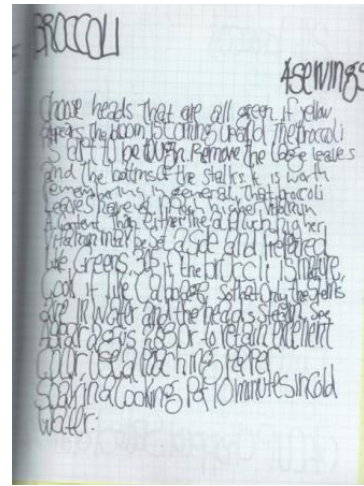 BROCCOLI
4 servings
Choose heads that are all green. if yellow
appears the bloom is coming up and the broccoli
is apt to be tough. Remove the large leaves
and the bottoms of the stalks. it is worth
remembering, in general, that broccoli
Leaves have a higher vitamin
A content than either the
may be set aside and prepared
Like Greens, 305 if the broccoli is mature,
Cook it like Cabbage, so that Only the stems
are in water and the heads steam, see
Asparagus or to retain excellent
Color use a Poaching Paper
Soak in a Cooking Pot 10 minutes in Cold
Water: